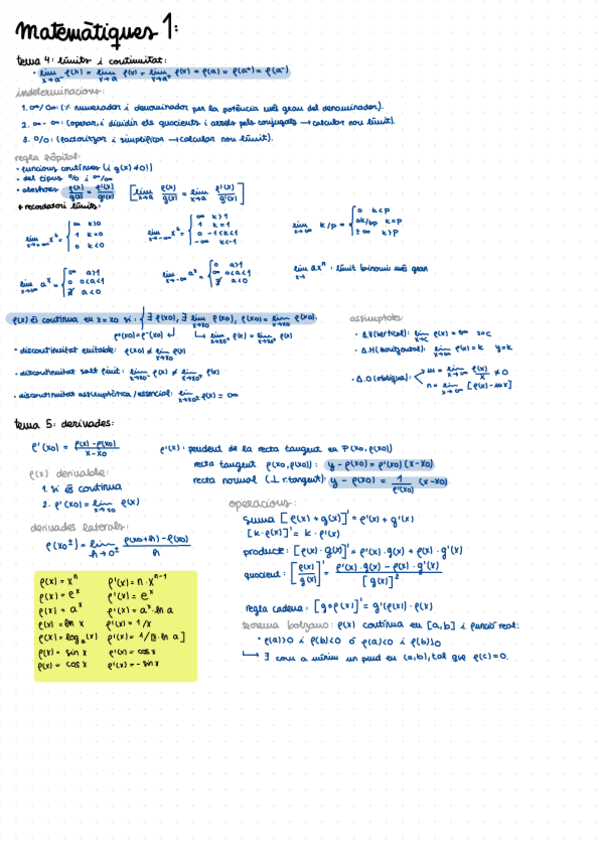 matemàtiques 1:
tema 4: límits i continuitat:
• lim x→a⁻ f(x) = lim x→a f(x) = lim x→a⁺ f(x) = f(a) = f(a⁺) = f(a⁻)
indeterminacions:
1. ∞/∞: (% numerador i denominador per la potència més gran del denominador).
2. ∞-∞: (operar i dividir els quocients i arrels pels conjugats → calcular nou límit).
3. 0/0: (factoritzar i simplificar → calcular nou límit).
regla hôpital:
• funcions contínues (i g(x) ≠ 0)
• del tipus 0/0 i ∞/∞
• aleshores f(x)/g(x) = f'(x)/g'(x) [lim x→a f(x)/g(x) = lim x→a f'(x)/g'(x)]
+ recordatori límits:
lim x→∞ xᵏ = { ∞ k>0 / 1 k=0 / 0 k<0
lim x→∞ kˣ = { ∞ k>1 / 1 k=1 / 0 -1<k<1 / -∞ k<-1
lim x→∞ k/p = { 0 k<p / ak/bp k=p / ±∞ k>p
lim x→∞ aˣ = { ∞ a>1 / 0 0<a<1 / ∄ a<0
lim x→-∞ aˣ = { 0 a>1 / ∞ 0<a<1 / ∄ a<0
lim x→ axⁿ : límit binomi més gran
f(x) és contínua en x=x₀ si: { ∃ f(x₀), ∃ lim x→x₀ f(x), f(x₀) = lim x→x₀ f(x).
f⁺(x₀) = f⁻(x₀) ↲ ↳ lim x→x₀⁺ f(x) = lim x→x₀⁻ f(x)
• discontinuïtat evitable: f(x₀) ≠ lim x→x₀ f(x)
• discontinuïtat salt finit: lim x→x₀⁻ f(x) ≠ lim x→x₀⁺ f(x)
• discontinuïtat assimptòtica/essencial: lim x→x₀± f(x) = ∞
assímptotes:
• A.V (vertical): lim x→c f(x) = ∞ x=c
• A.H (horitzontal): lim x→∞ f(x) = k y=k
• A.O (obliqua): m = lim x→∞ f(x)/x ≠ 0
n = lim x→∞ [f(x) - mx]
tema 5: derivades:
f'(x₀) = f(x)-f(x₀) / x-x₀
f'(x): pendent de la recta tangent en P(x₀, f(x₀))
recta tangent f(x₀, f(x₀)): y - f(x₀) = f'(x₀)(x-x₀)
recta normal (⊥ r.tangent): y - f(x₀) = 1/f'(x₀) (x-x₀)
f(x) derivable:
1. si és contínua
2. f'(x₀) = lim x→x₀ f(x)
derivades laterals:
f(x₀±) = lim h→0± f(x₀+h) - f(x₀) / h
f(x) = xⁿ f'(x) = n·xⁿ⁻¹
f(x) = eˣ f'(x) = eˣ
f(x) = aˣ f'(x) = aˣ·ln a
f(x) = ln x f'(x) = 1/x
f(x) = logₐ(x) f'(x) = 1/[x·ln a]
f(x) = sin x f'(x) = cos x
f(x) = cos x f'(x) = -sin x
operacions:
suma [f(x) + g(x)]' = f'(x) + g'(x)
[k·f(x)]' = k·f'(x)
producte: [f(x)·g(x)]' = f'(x)·g(x) + f(x)·g'(x)
quocient: [f(x)/g(x)]' = f'(x)·g(x) - f(x)·g'(x) / [g(x)]²
regla cadena: [g∘f(x)]' = g'(f(x))·f(x)
teorema bolzano: f(x) contínua en [a,b] i funció real:
• f(a)>0 i f(b)<0 ó f(a)<0 i f(b)>0
↳ ∃ com a mínim un punt en (a,b), tal que f(c)=0.